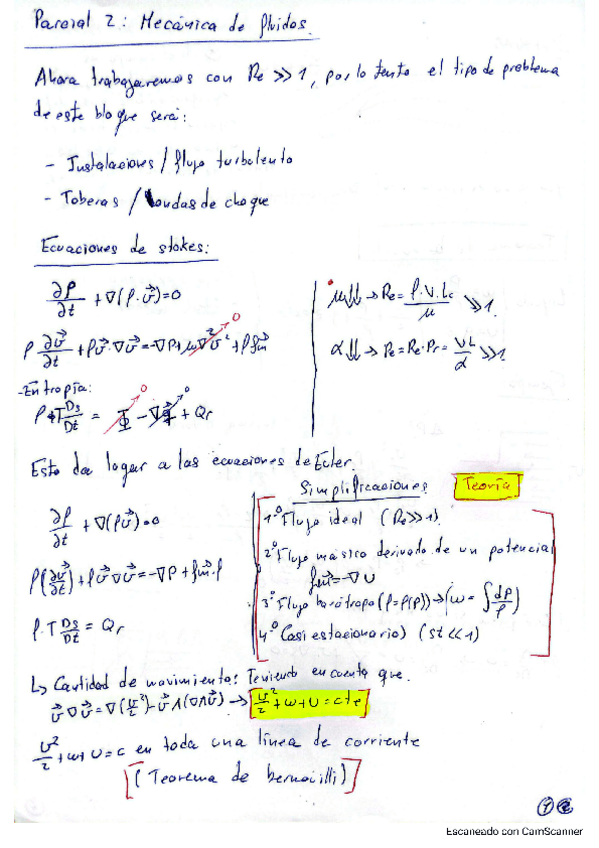 Parcial 2: Mecánica de fluidos.
Ahora trabajaremos con Re >> 1, por lo tanto el tipo de problema
de este bloque será:
- Instalaciones / flujo turbulento
- Toberas / ondas de choque
Ecuaciones de stokes:
∂ρ/∂t + ∇(ρ·v⃗)=0
ρ ∂v⃗/∂t + ρv⃗·∇v⃗ = -∇P + μ∇²v⃗² + ρf⃗m 0
- Entropía:
ρT Ds/Dt = Φ - ∇q⃗ + Qr 0 0
μ↓↓ → Re = ρ·v·Lc/μ >> 1.
α↓↓ → Pe = Re·Pr = vL/α >> 1
Esto da lugar a las ecuaciones de Euler.
∂ρ/∂t + ∇(ρv⃗)=0
ρ(∂v⃗/∂t) + ρv⃗∇v⃗ = -∇P + f⃗m·ρ
ρ·T Ds/Dt = Qr
Simplificaciones Teoría
1º Flujo ideal (Re>>1).
2º Flujo másico derivado de un potencial
f⃗m = -∇U
3º Flujo barátropo (ρ=ρ(P)) → (ω = ∫dP/ρ)
4º Casi estacionario) (st << 1)
↳ Cantidad de movimiento: Teniendo en cuenta que.
v⃗∇v⃗ = ∇(v²/2) - v⃗∧(∇∧v⃗) → v²/2 + ω + U = cte
v²/2 + ω + U = c en toda una línea de corriente
(Teorema de bernouilli)
Escaneado con CamScanner